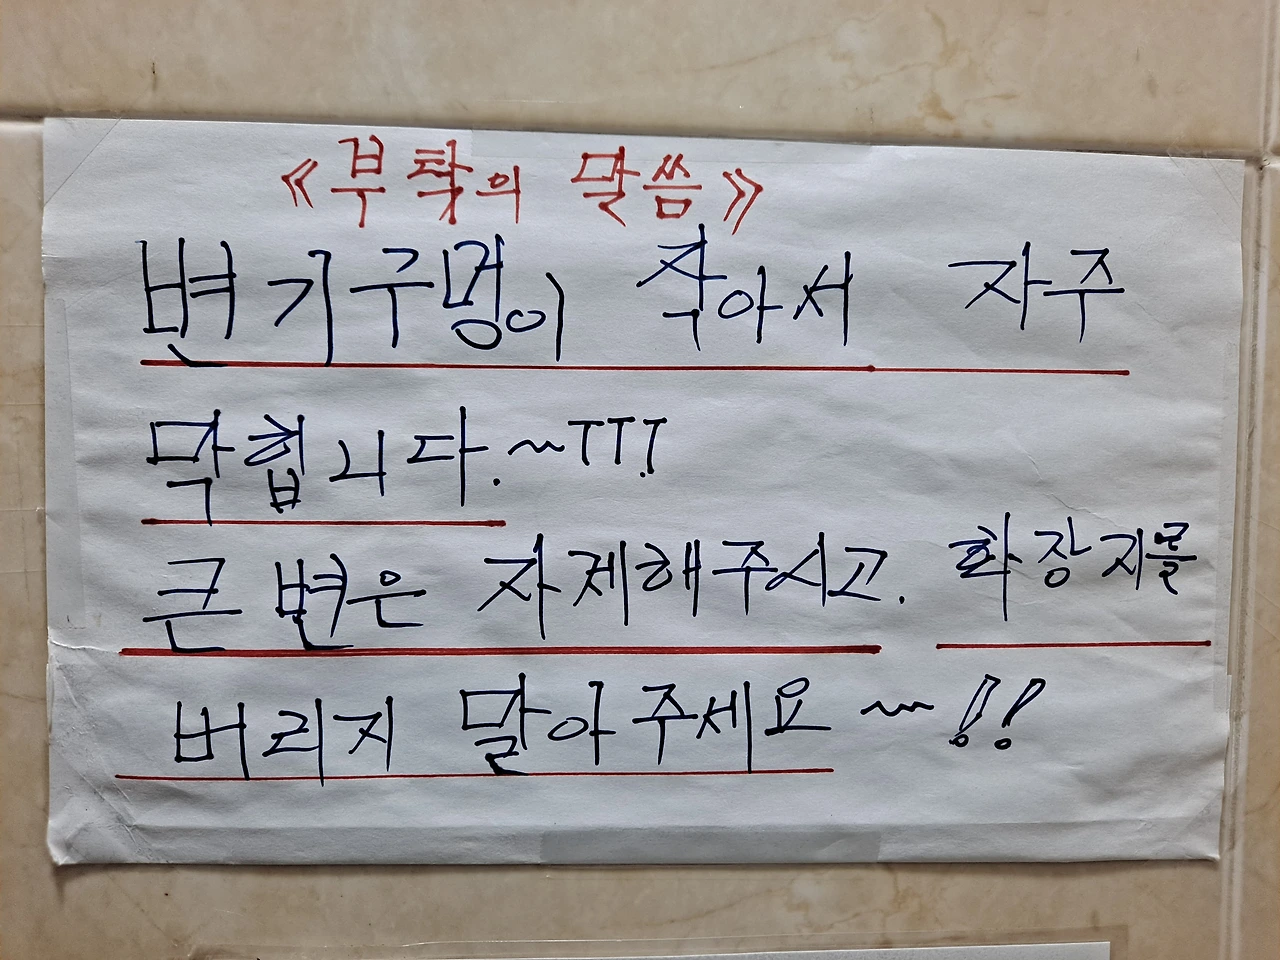 《부탁의 말씀》
변기구멍이 작아서 자주
막힙니다.~TTT
큰 변은 자제해주시고. 화장지를
버리지 말아주세요~!!